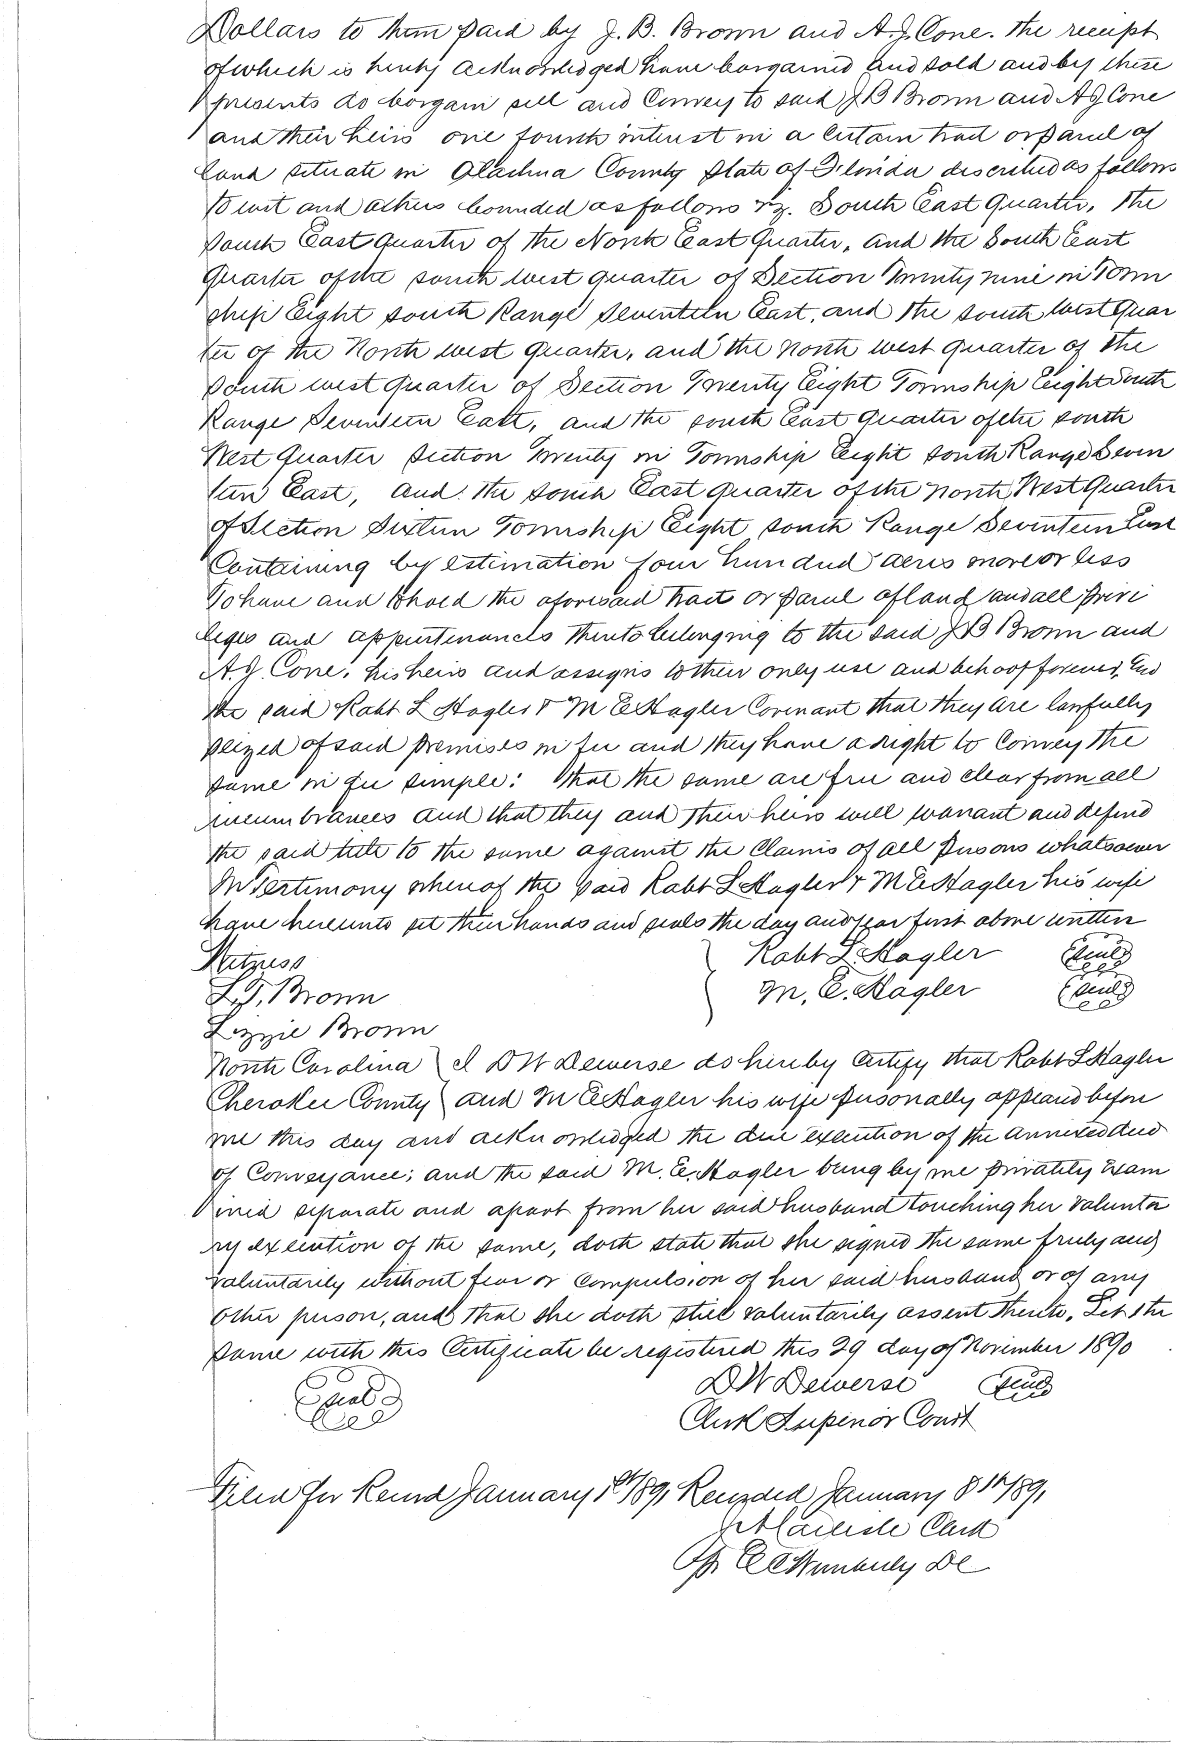 Dollars to them paid by J. B. Brown and A. J. Cone. the receipt
of which is hereby acknowledged have bargained and sold and by these
presents do bargain sell and Convey to said J B Brown and A J Cone
and their heirs one fourth interest in a certain tract or parcel of
land situate in Alachua County State of Florida described as follows
to wit and others bounded as follows viz. South East Quarter, the
South East Quarter of the North East Quarter, and the South East
Quarter of the south west quarter of Section Twenty nine in Town
ship Eight south Range Seventeen East, and the south West Quar
ter of the North west Quarter, and the north west quarter of the
south west quarter of Section Twenty Eight Township Eight South
Range Seventeen East, and the south East Quarter of the south
West Quarter Section Twenty in Township Eight south Range Seven
teen East, and the south East quarter of the north West Quarter
of Section Sixteen Township Eight south Range Seventeen East
Containing by estimation four hundred acres more or less
To have and to hold the aforesaid tract or parcel of land and all privi
leges and appurtenances thereto belonging to the said J B Brown and
A. J. Cone, his heirs and assigns to their only use and behoof forever, And
the said Robt L Hagler & M E Hagler Covenant that they are lawfully
seized of said premises in fee and they have a right to Convey the
same in fee simple: that the same are free and clear from all
incumbrances and that they and their heirs will warrant and defend
the said title to the same against the Claims of all Persons whatsoever
In Testimony whereof the said Robt L Hagler & M E Hagler his wife
have hereunto set their hands and seals the day and year first above written
Witness Robt L. Hagler (Seal)
L. T. Brown M. E. Hagler (Seal)
Lizzie Brown
North Carolina } I D W Deweese do hereby Certify that Robt L Hagler
Cherokee County } and M E Hagler his wife personally appeared before
me this day and acknowledged the due execution of the annexed deed
of Conveyance; and the said M. E. Hagler being by me privately exam
ined separate and apart from her said husband touching her volunta
ry execution of the same, doth state that she signed the same freely and
voluntarily without fear or compulsion of her said husband or of any
other person, and that she doth still voluntarily assent thereto. Let the
same with this Certificate be registered this 29 day of November 1890
(Seal) D W Deweese (Seal)
Clerk Superior Court
Filed for Record January 1st/891 Recorded January 8th/891
Carlisle Clerk
Pr E C Wimberly DC